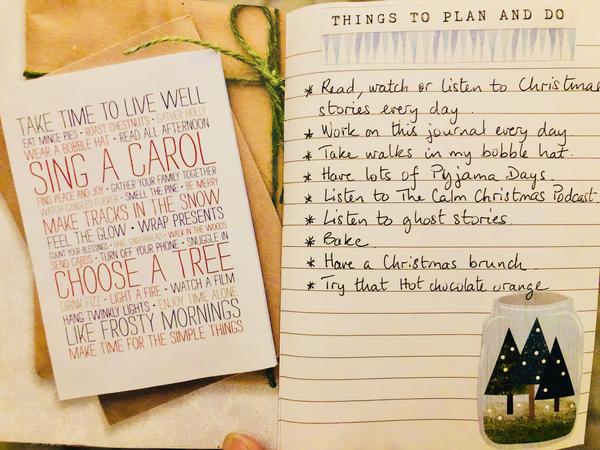 TAKE TIME TO LIVE WELL
EAT MINCE PIES • ROAST CHESTNUTS • GATHER HOLLY
WEAR A BOBBLE HAT • READ ALL AFTERNOON
SING A CAROL
FIND PEACE AND JOY • GATHER YOUR FAMILY TOGETHER
WATCH CANDLES FLICKER • SMELL THE PINE • BE MERRY
MAKE TRACKS IN THE SNOW
FEEL THE GLOW • WRAP PRESENTS
COUNT YOUR BLESSINGS • MAKE GINGERBREAD • WALK IN THE WOODS
SEND CARDS • TURN OFF YOUR PHONE • SNUGGLE IN
CHOOSE A TREE
DRINK FIZZ • LIGHT A FIRE • WATCH A FILM
HANG TWINKLY LIGHTS • ENJOY TIME ALONE
LIKE FROSTY MORNINGS
MAKE TIME FOR THE SIMPLE THINGS
THINGS TO PLAN AND DO
* Read, watch or listen to Christmas
stories every day.
* Work on this journal every day.
* Take walks in my bobble hat.
* Have lots of Pyjama Days.
* Listen to The Calm Christmas Podcast.
* Listen to ghost stories.
* Bake.
* Have a Christmas brunch.
* Try that Hot chocolate orange